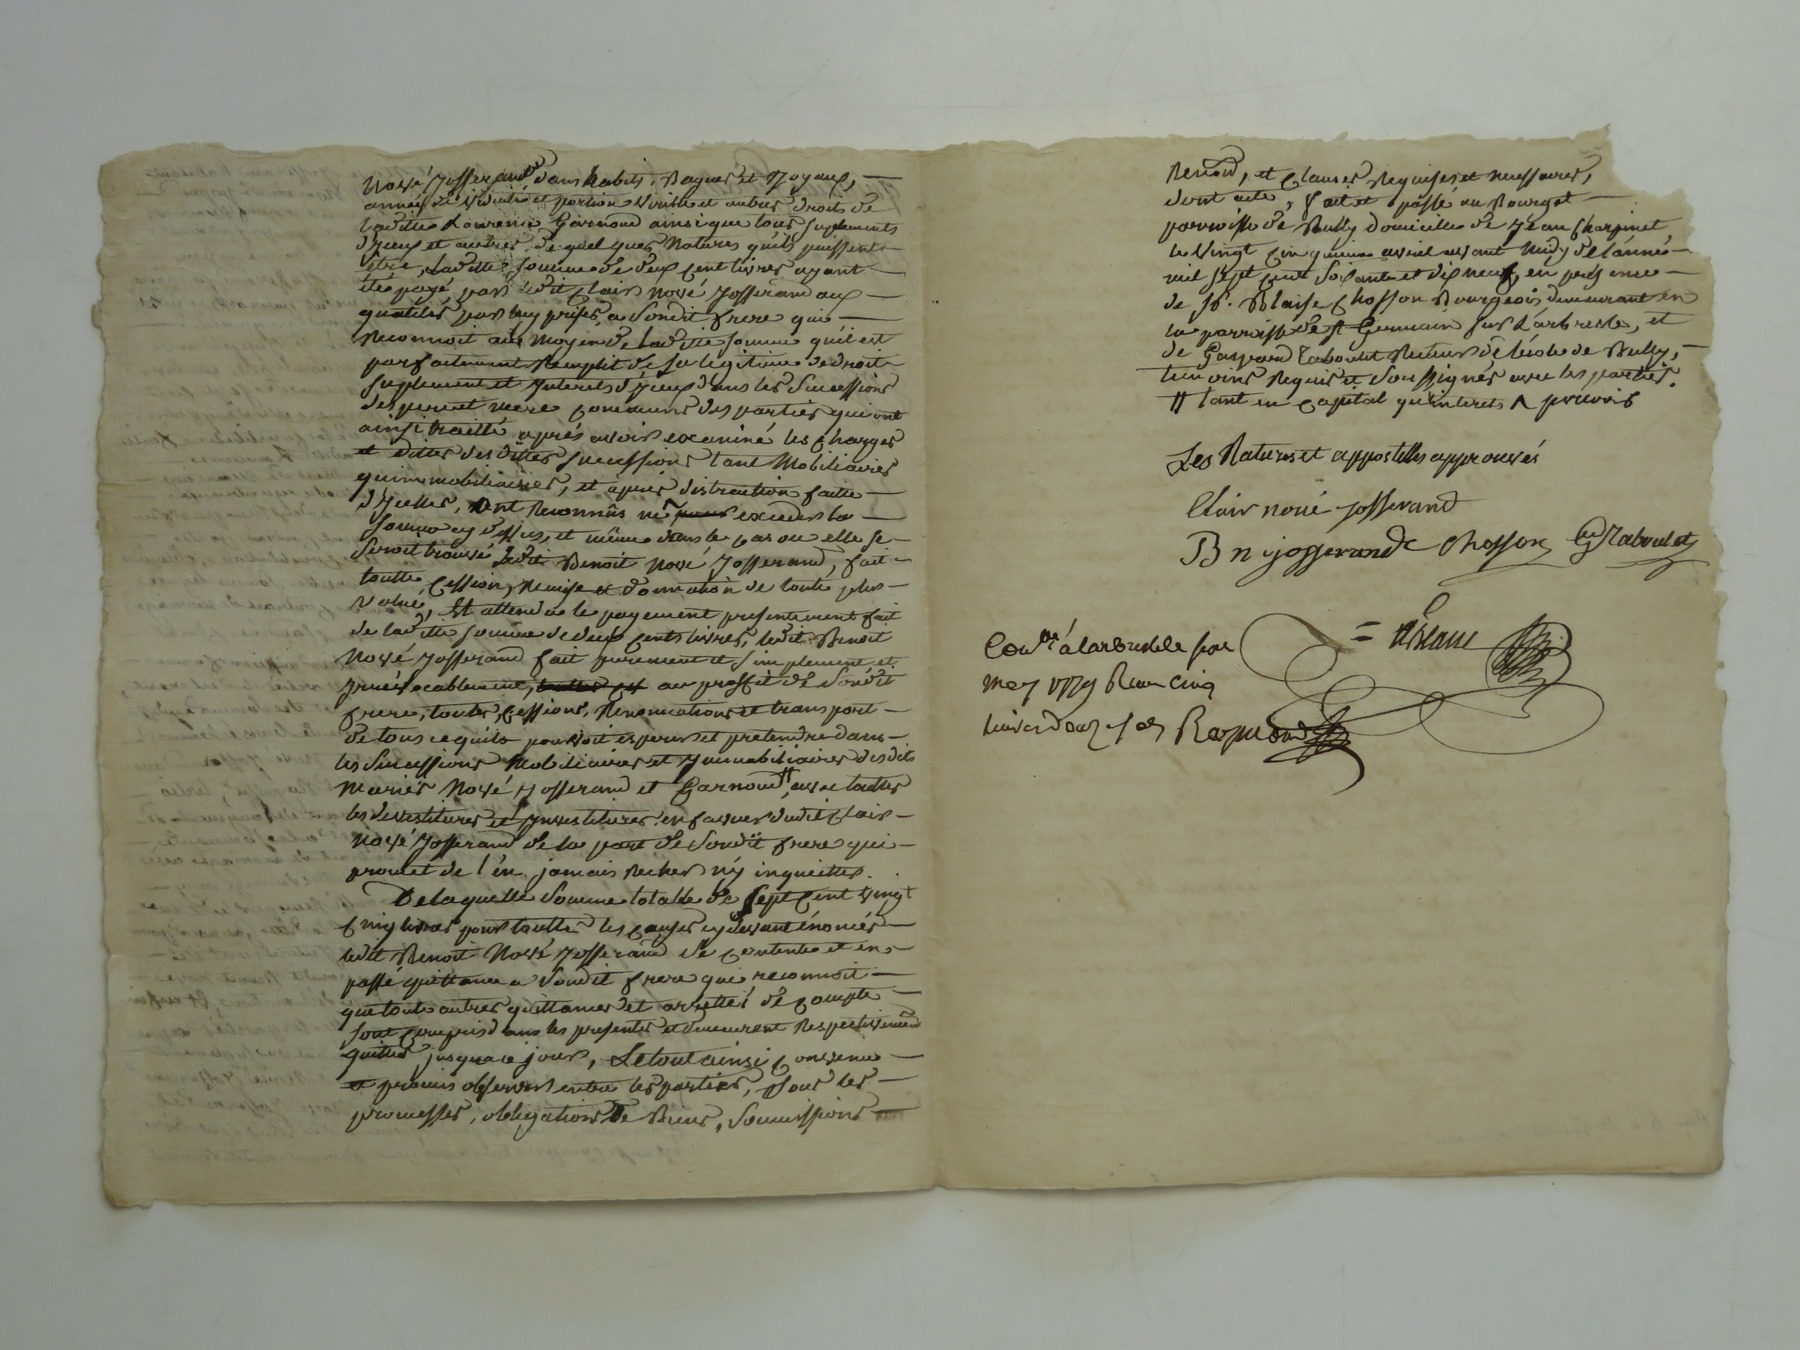 Noyé Josserand dans habits, Bagues et Joyaux,
année de viduité et portion virille et autres droits de
laditte Laurence Garnoud ainsi que tous suplements
d'jceux et autres de quelques Natures quils puissent
etre, Laditte somme de deux cent livres ayant
été payé par ledit Clair Noyé Josserand aux
qualités par luy prises a sondit frere qui
reconnoit au moyen de laditte somme qu'il est
parfaitement Remplit de sa legitime de droit
suplement et Interets d'jceux dans les Successions
des pere et mere communs des parties qui ont
ainsi traitté après avoir examiné les charges
et dittes desdittes successions tant Mobiliaires
qu'immobiliaires, et après distraction faitte
d'jcelles, ont Reconnûs ne exceder la
somme cy dessus, et même dans le cas ou elle se
seroit trouvé ledit Benoit Noyé Josserand, fait
toutte cession, Remise et donnation de toute plus
value, Et attendu le payement presentement fait
de laditte somme de deux cents livres, ledit Benoit
Noyé Josserand fait purement et simplement et
jrrévocablement, au proffit de sondit
frere, toutes cessions, Renonciations et transport
de tous ce quils pouvoit esperer et pretendre dans
les Successions Mobiliaires et Jmmobiliaires desdits
mariés Noyé Josserand et Garnoud # avec touttes
les devestitures et Jnvestitures en faveur dudit Clair
Noyé Josserand de la part de sondit frere qui
promet de l'én jamais Recher ny inquietter.
De laquelle Somme totalle de sept cent vingt
cinq livres pour toutte les causes cy devant énoncés
ledit Benoit Noyé Josserand se contente et en
passé quittance a sondit frere qui reconnoit
que toute autres quittances et arrettés de compte
sont compris dans les presentes et demeurent Respectivement
quittes jusqua ce jour, Le tout ainsi convenu
et promis observer entre les parties, sous les
promesses, obligations de Biens, soumissions
Renon, et clauses Requises et necessaires,
dont acte, fait et passé au Bourget
parroisse de Bully domicille de Jean Charpinet
le vingt cinquieme avril avant midy de l'année
mil sept cent soixante et dix neuf, en presence
de Sr. Blaise Chosson Bourgeois demeurant en
la parroisse de St Germain sur L'arbresle, et
de Gaspard Raboulet Recteur de l'école de Bully,
temoins Requis et soussignés avec les parties.
# tant en capital qu'interets
Les Ratures et appostilles approuvés
Clair noié josserand
B n josserand Chosson G Raboulet
Con.lé à larbresle le
may 1779 Reçu cinq
livres douze sols